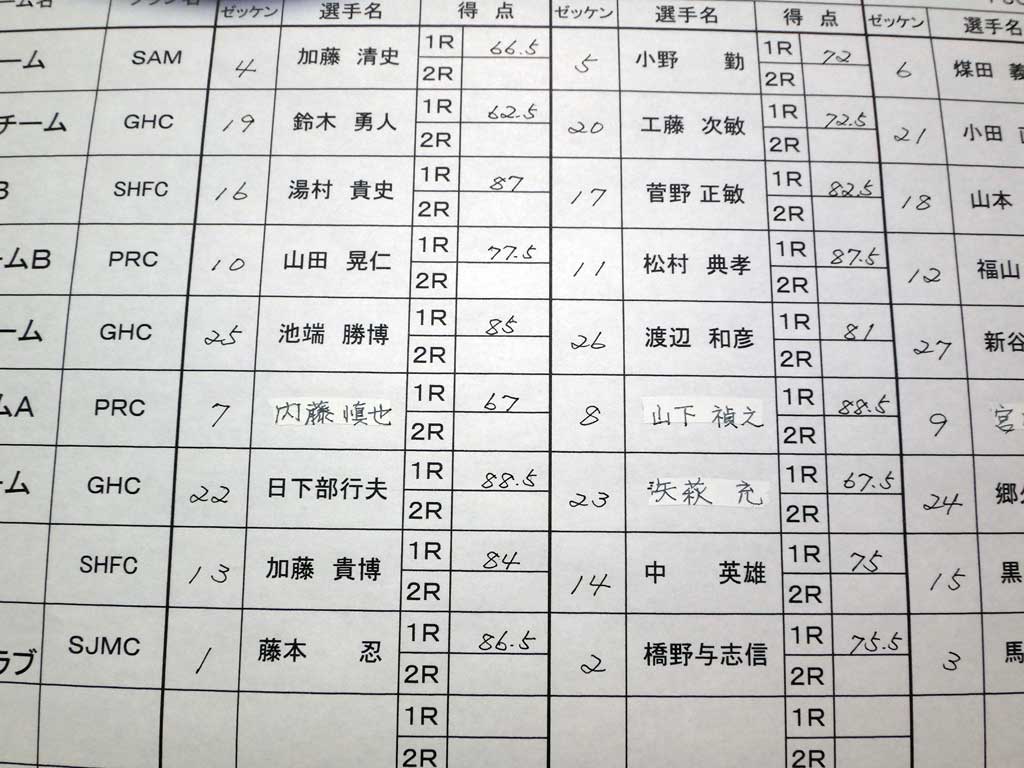 ゼッケン 選手名 得点 ゼッケン 選手名 得点 ゼッケン 選手名
ーム SAM 4 加藤 清史 1R 66.5 5 小野 勤 1R 72 6 煤田 義
2R 2R
チーム GHC 19 鈴木 勇人 1R 62.5 20 工藤 次敏 1R 72.5 21 小田
2R 2R
B SHFC 16 湯村 貴史 1R 87 17 菅野 正敏 1R 82.5 18 山本
2R 2R
ームB PRC 10 山田 晃仁 1R 77.5 11 松村 典孝 1R 87.5 12 福山
2R 2R
ーム GHC 25 池端 勝博 1R 85 26 渡辺 和彦 1R 81 27 新谷
2R 2R
ムA PRC 7 内藤慎也 1R 67 8 山下 禎之 1R 88.5 9 宮
2R 2R
ーム GHC 22 日下部行夫 1R 88.5 23 矢萩 充 1R 67.5 24 郷
2R 2R
SHFC 13 加藤 貴博 1R 84 14 中 英雄 1R 75 15 黒
2R 2R
ラブ SJMC 1 藤本 忍 1R 86.5 2 橋野与志信 1R 75.5 3 馬
2R 2R
1R 1R
2R 2R